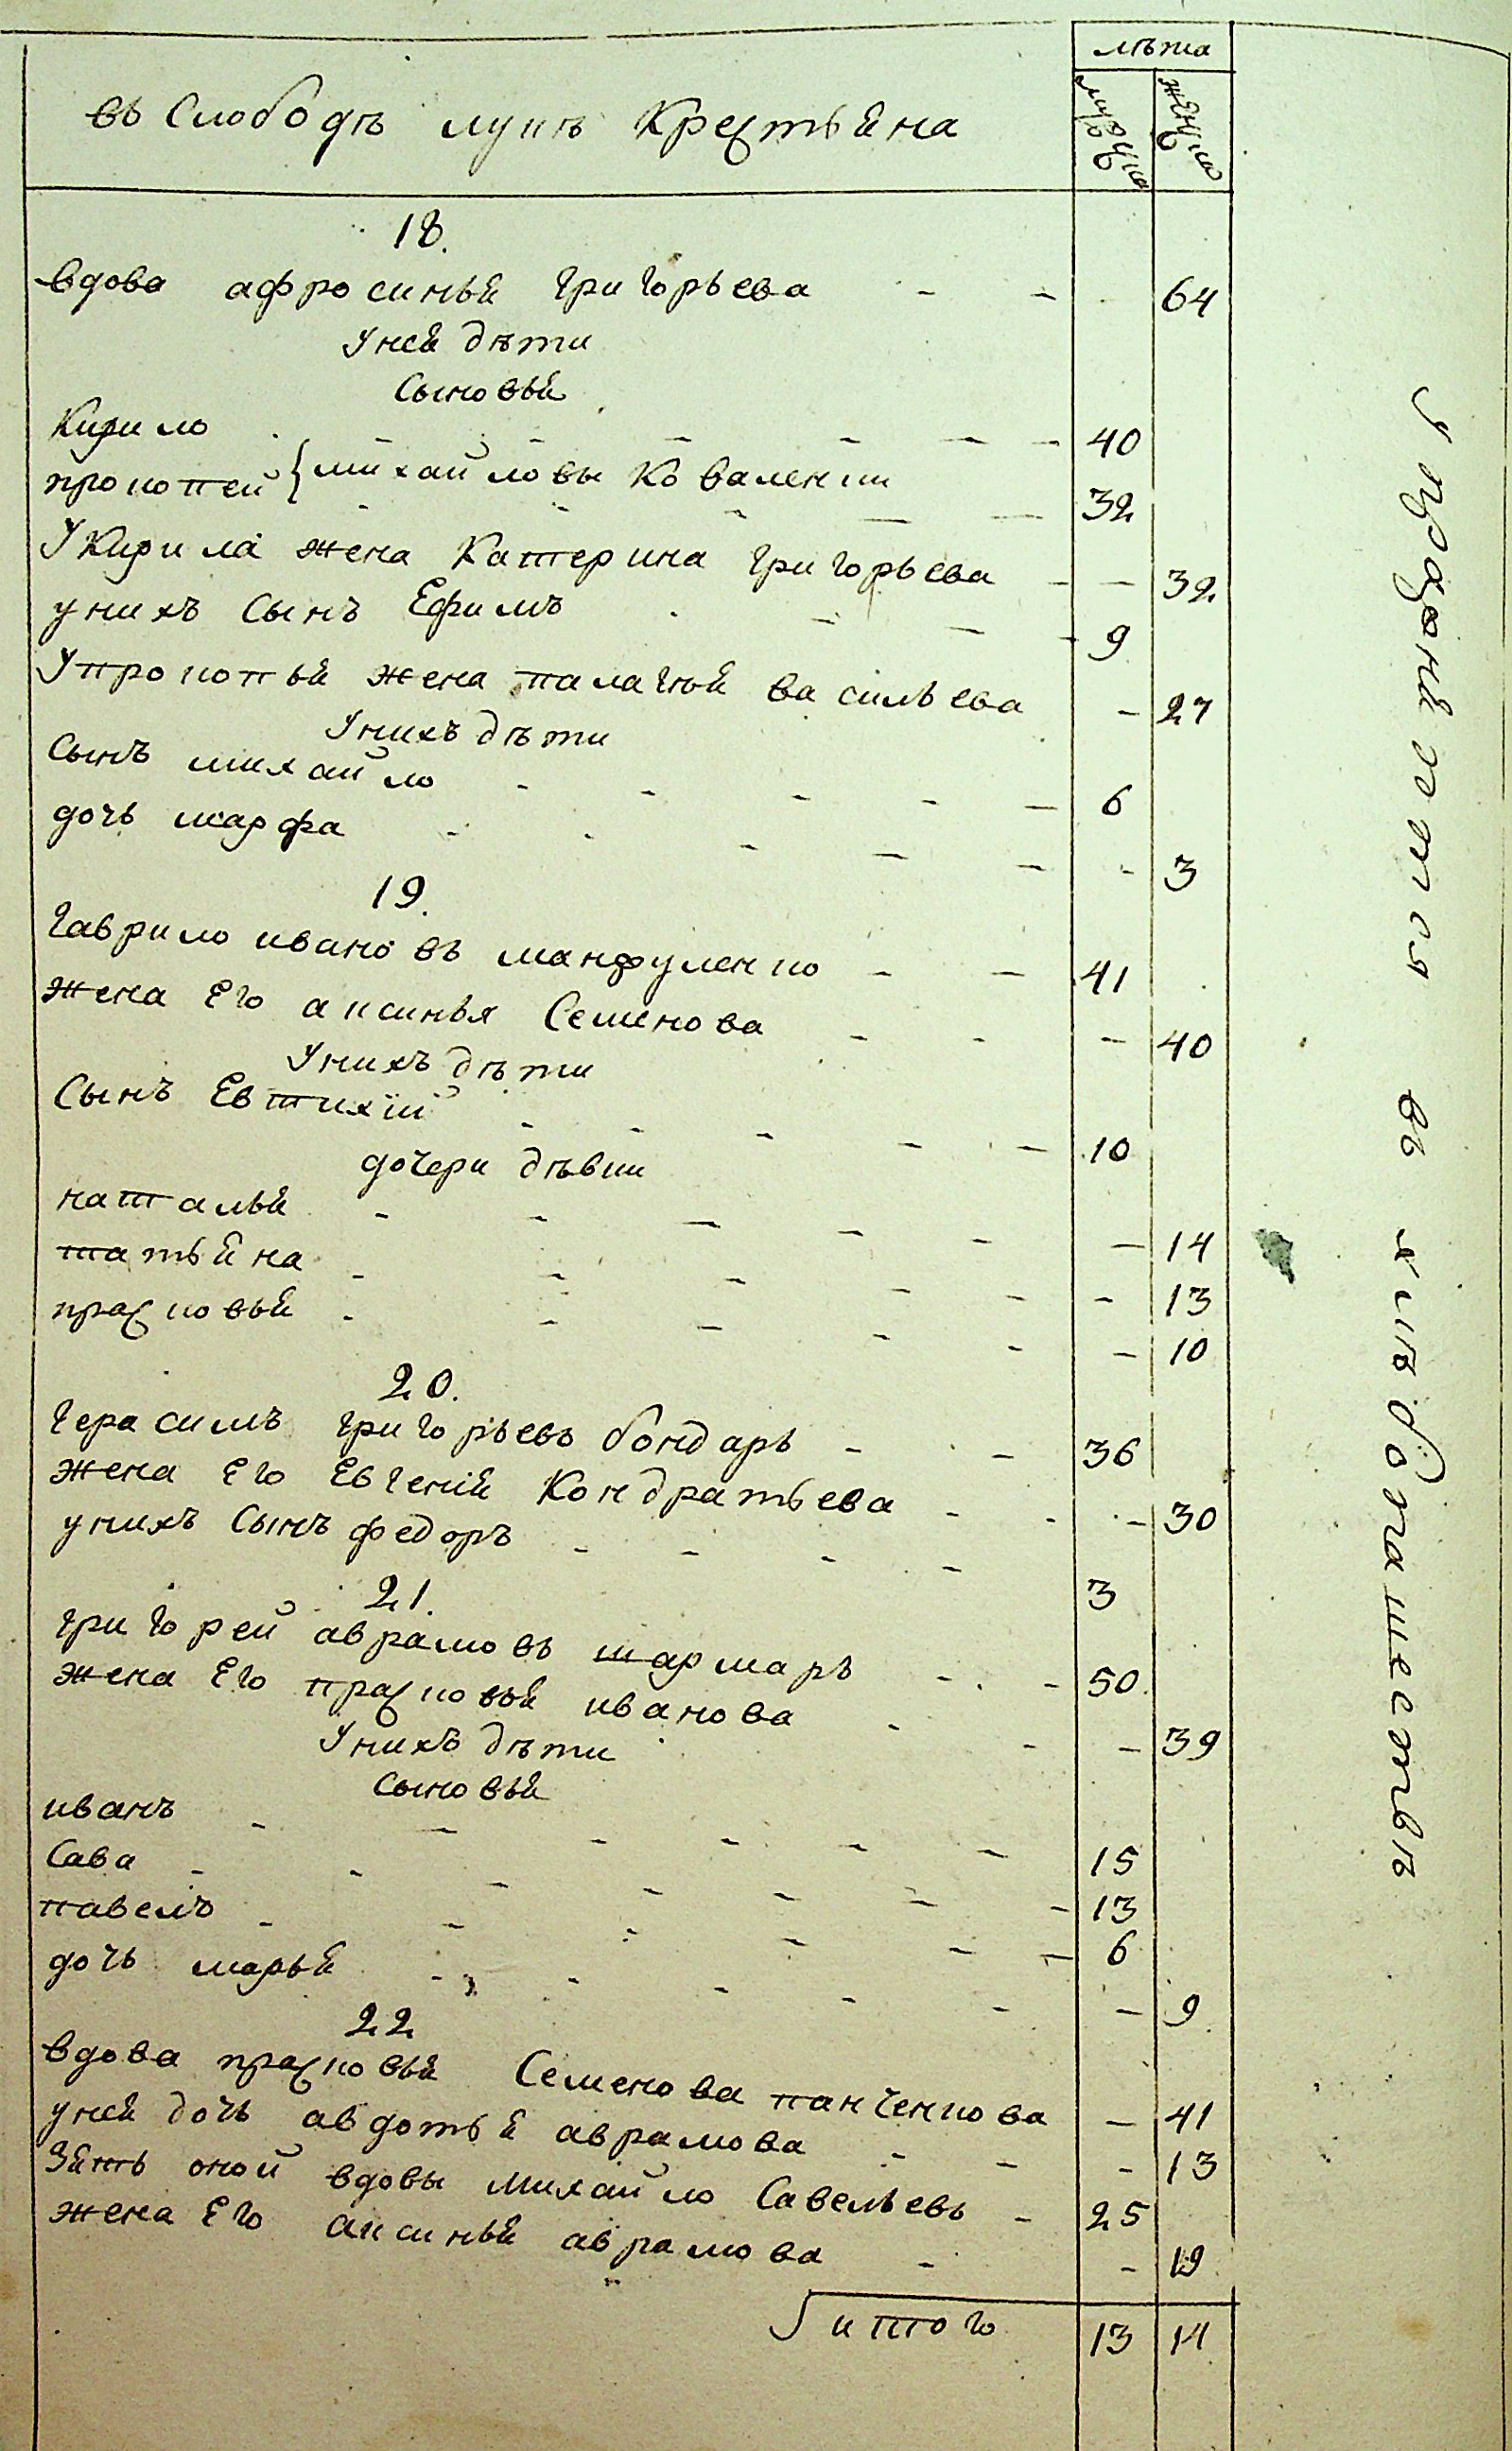 лѣта
въ Слободѣ лукѣ Крестьяна
мужчинъ
женщинъ
18.
вдова афросинья григорьева - - 64
У ней дѣти
Сыновья
Кирило - - - - - - 40
прокопей { михайловы Коваленки - - - - - 32
У Кирила жена Катерина григорьева - - 32
у нихъ Сынъ Ефимъ - - - - 9
У прокопья жена палагья васильева - 27
У нихъ дѣти
Сынъ михайло - - - - - 6
дочь марфа - - - - - - 3
19.
гаврило ивановъ манфуленко - - 41
жена Его аксинья Семенова - - - 40
У нихъ дѣти
Сынъ Евтихій - - - - - 10
дочери дѣвки
наталья - - - - - - 14
татьяна - - - - - - 13
прасковья - - - - - - 10
20.
герасимъ григорьевъ бондарь - - 36
жена Его Евгенія Кондратьева - - - 30
у нихъ Сынъ федоръ - - - - 3
21.
григорей аврамовъ шармаръ - - - 50
жена Его прасковья иванова - - - 39
У нихъ дѣти
Сыновья
иванъ - - - - - - 15
Сава - - - - - - - 13
павелъ - - - - - - 6
дочь марья - - - - - - 9
22
вдова прасковья Семенова панченкова - 41
у ней дочь авдотья аврамова - - - 13
Зять оной вдовы михайло Савельевъ - 25
жена Его аксинья аврамова - - 19
итого 13 14
въ